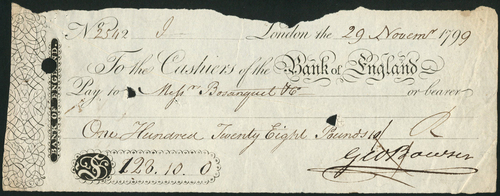 No. 2542 London the 29 Novemr 1799
To the Cashiers of the Bank of England
Pay to Messrs Bosanquet & Co or bearer
One Hundred Twenty Eight Pounds 10/
£128.10.0 Geo Bowser
BANK OF ENGLAND.